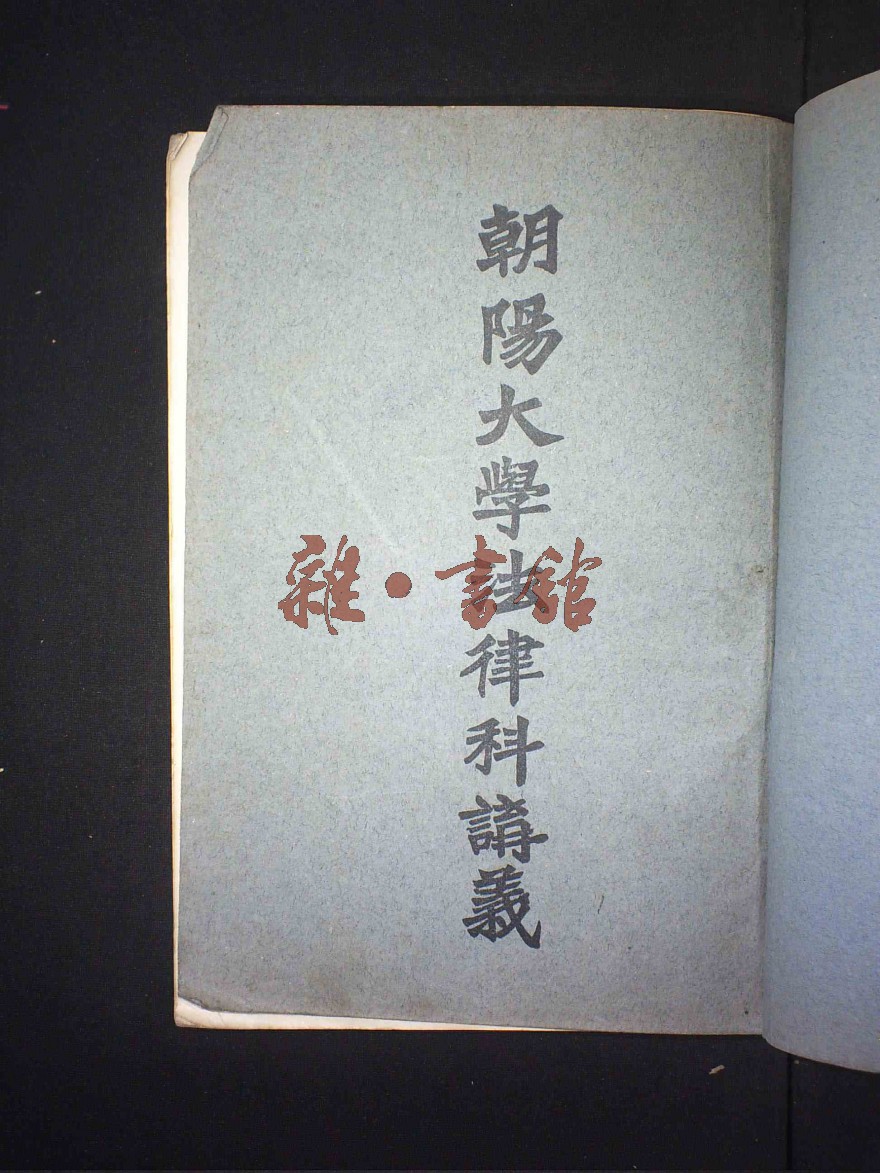 朝陽大學法律科講義
雜·書館